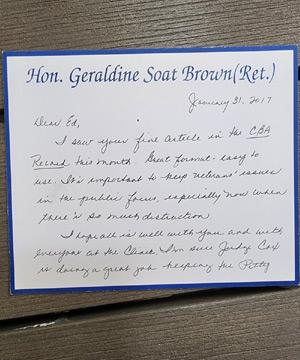 Hon. Geraldine Soat Brown (Ret.)
January 31, 2017
Dear Ed,
I saw your fine article in the CBA
Record this month. Great format - easy to
use. It's important to keep veterans' issues
in the public focus, especially now when
there's so much distraction.
I hope all is well with you and with
everyone at the Clinic. I'm sure Judge Cox
is doing a great job keeping the Petty